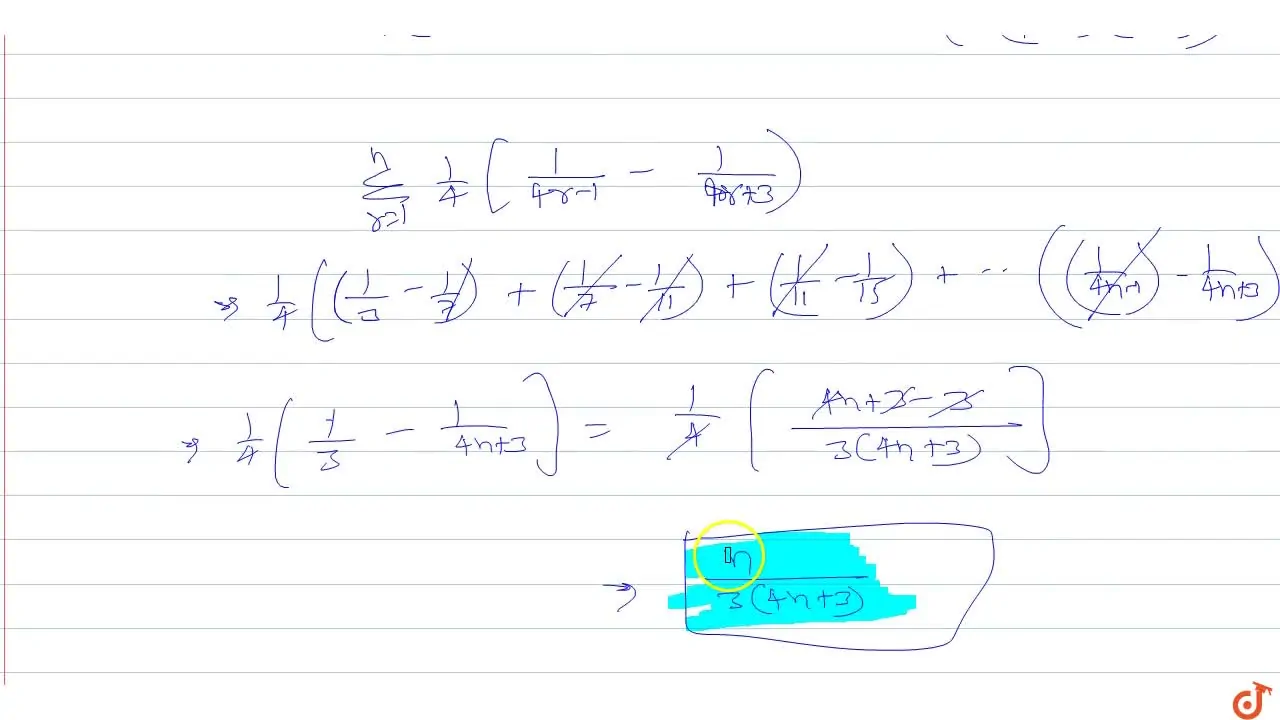 n
∑ 1/4 ( 1/(4r-1) - 1/(4r+3) )
r=1
⇒ 1/4 ( (1/3 - 1/7) + (1/7 - 1/11) + (1/11 - 1/15) + ... ( (1/(4n-1)) - 1/(4n+3) )
⇒ 1/4 [ 1/3 - 1/(4n+3) ] = 1/4 [ (4n+3-3)/(3(4n+3)) ]
⇒ n/(3(4n+3))